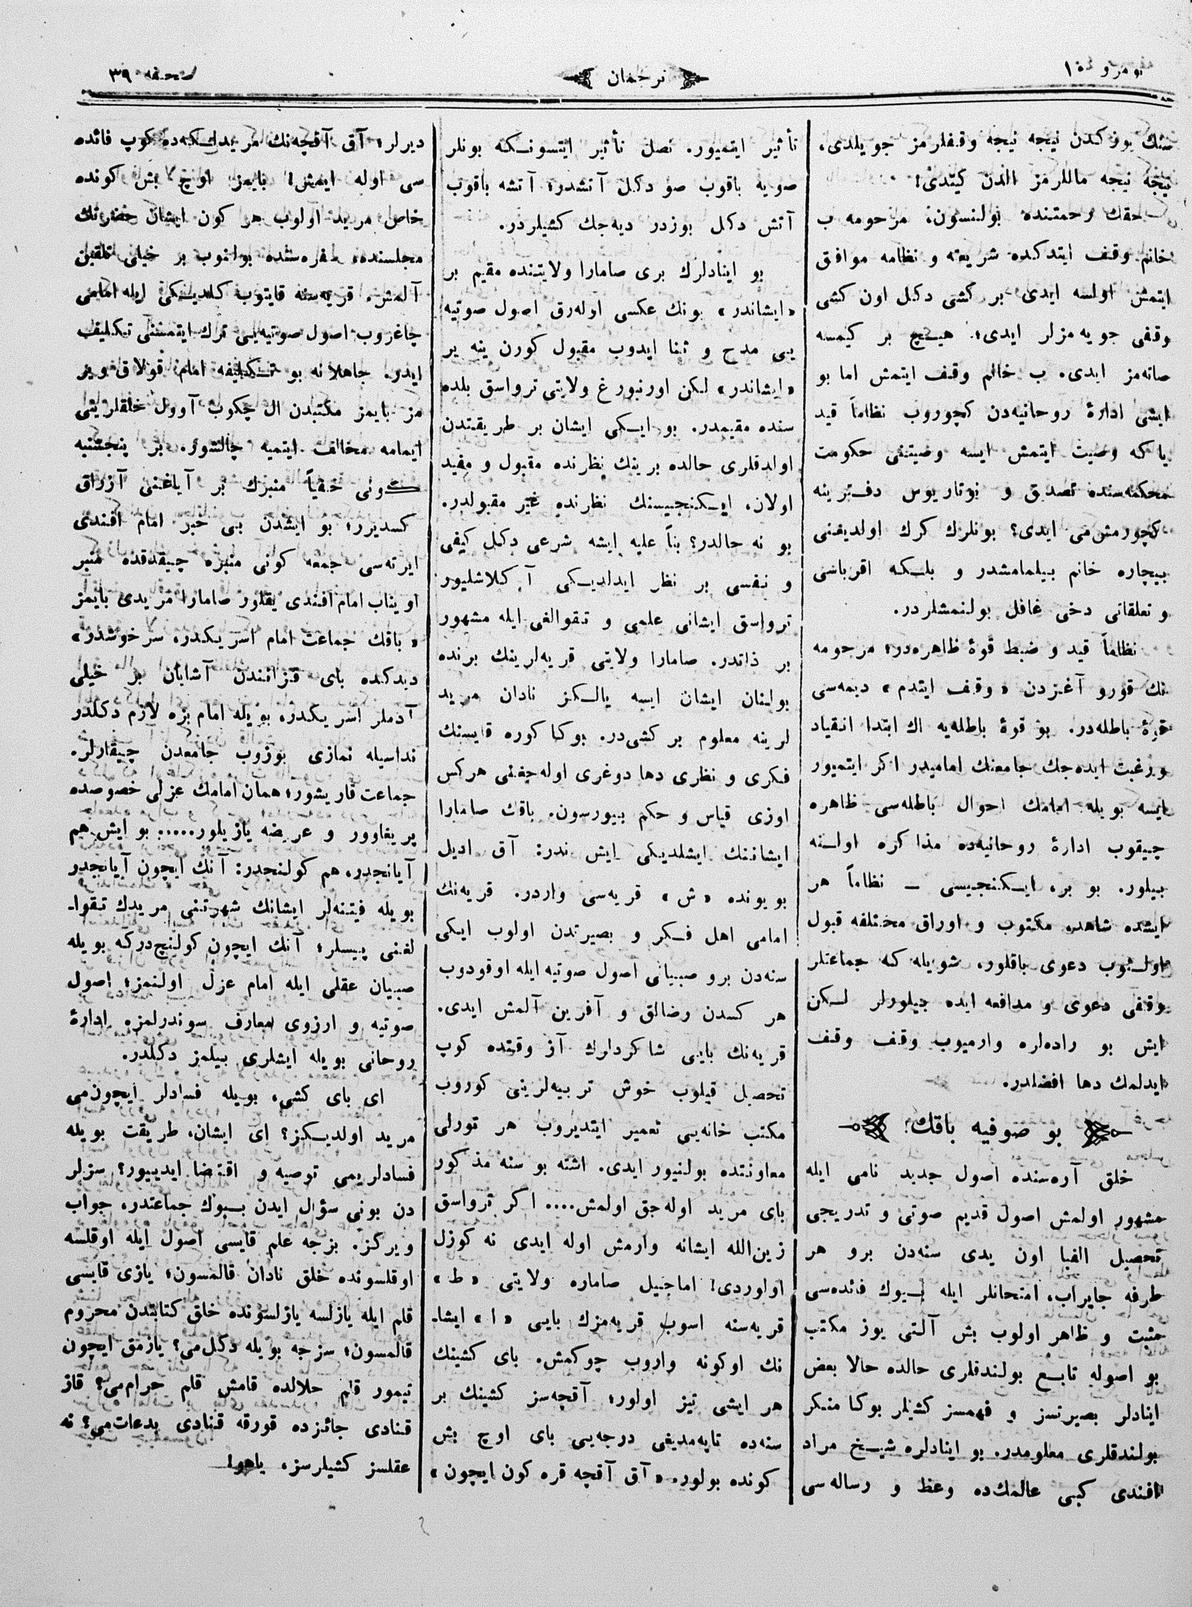 نومرو ١٠
ترجمان
صحيفه ٣٩
سنك يوزكدن نيچه نيچه وقفلرمز جويلدى،
نيچه نيچه ماللرمز الدن كيتدى!
حقك رحمتنده بولنسون؛ مرحومه ب
خانم وقف ايتدكده شريعته و نظامه موافق
ايتمش اولسه ايدى بر كشى دكل اون كشى
وقفى جويه‌مزلر ايدى؛ هيچ بر كيمسه
صانه‌مز ايدى. ب خانم وقف ايتمش اما بو
ايشى ادارۀ روحانيه‌دن كچوروب نظاماً قيد
يا كه وصيت ايتمش ايسه وصيتنى حكومت
محكمه‌سنده تصديق و نوتاريوس دفترينه
كچورمش‌مى ايدى؟ بونلرك كرك اولديغنى
بيچاره خانم بيلمامشدر و بلكه اقرباسى
و تعلقاتى دخى غافل بولنمشلردر.
نظاماً قيد و ضبط قوۀ ظاهره‌در؛ مرحومه
نك قورو آغزدن «وقف ايتدم» ديمه‌سى
قوۀ باطله‌در. بو قوۀ باطله‌يه اك ابتدا انقياد
و رغبت ايده‌جك جامعنك اماميدر اكر ايتميور
ايسه بويله امامك احوال باطله‌سى ظاهره
چيقوب ادارۀ روحانيه‌ده مذاكره اولنه
بيلور. بو بر، ايكنجيسى — نظاماً هر
ايشده شاهد، مكتوب و اوراق مختلفه قبول
اولنوب دعوى باقلور، شويله كه جماعتلر
وقفى دعوى و مدافعه ايده بيلورلر لكن
ايش بو راده‌لره وارميوب وقف وقف
ايدلمك دها افضلدر.
بو صوفيه باقك!
خلق آره‌سنده اصول جديد نامى ايله
مشهور اولمش اصول قديم صوتى و تدريجى
تحصيل الفبا اون يدى سنه‌دن برو هر
طرفه جايراب، امتحانلر ايله بيوك فائده‌سى
مثبت و ظاهر اولوب بش آلتى يوز مكتب
بو اصوله تابع بولندقلرى حالده حالا بعض
اينادلر بصيرتسز و فهمسز كشيلر بوكا منكر
بولندقلرى معلومدر. بو اينادلره شيخ مراد
افندى كبى عالمك‌ده وعظ و رساله‌سى
تأثير ايتميور. نصل تأثير ايتسونكه بونلر
صويه باقوب صو دكل آتشدر؛ آتشه باقوب
آتش دكل بوزدر ديه‌جك كشيلردر.
بو اينادلرك برى صامارا ولايتنده مقيم بر
«ايشاندر» بونك عكسى اوله‌رق اصول صوتيه
يى مدح و ثنا ايدوب مقبول كورن ينه بر
«ايشاندر» لكن اورنبورغ ولايتى ترواسق بلده
سنده مقيمدر. بو ايكى ايشان بر طريقتدن
اولدقلرى حالده برينك نظرنده مقبول و مفيد
اولان، ايكنجيسنك نظرنده غير مقبولدر.
بو نه حالدر؟ بناً عليه ايشه شرعى دكل كيفى
و نفسى بر نظر ايدلديكى آكلاشليور
ترواسق ايشانى علمى و تقوالغى ايله مشهور
بر ذاتدر. صامارا ولايتى قريه‌لرينك برنده
بولنان ايشان ايسه يالكز نادان مريد
لرينه معلوم بر كشى‌در. بوكا كوره قايسنك
فكرى و نظرى دها دوغرى اوله‌جغنى هركس
اوزى قياس و حكم بيورسون. باقك صامارا
ايشاننك ايشلديكى ايش ندر: آق اديل
بويونده «ش» قريه‌سى واردر. قريه‌نك
امامى اهل فكر و بصيرتدن اولوب ايكى
سنه‌دن برو صبيانى اصول صوتيه ايله اوقودوب
هر كسدن رضالق و آفرين آلمش ايدى.
قريه‌نك بايى شاكردلرك آز وقتده كوپ
تحصيل قيلوب خوش تربيه‌لرينى كوروب
مكتب خانه‌يى تعمير ايتديروب هر تورلى
معاونتده بولنيور ايدى. اشته بو سنه مذكور
باى مريد اوله‌جق اولمش.... اكر ترواسق
زين‌الله ايشانه وارمش اوله ايدى نه كوزل
اولوردى! اما جيبل صاماره ولايتى «ط»
قريه‌سنه اسوب قريه‌مزك بايى «ا» ايشا-
نك اوكونه واروب چوكمش. باى كشينك
هر ايشى تيز اولور؛ آقچه‌سز كشينك بر
سنه‌ده تاپه‌مديغى درجه‌يى باى اوچ بش
كونده بولور. «آق آقچه قره كون ايچون»
ديرلر؛ آق آقچه‌نك مريدلكده‌ده كوپ فائده
سى اوله ايمش! بايمز اوچ بش كونده
خاص مريد اولوب هر كون ايشان حضرتنك
مجلسنده، سفره‌سنده بولنوب بر خيلى تلقين
آلمش. قريه‌سنه قايتوب كلديكى ايله امامى
چاغروب اصول صوتيه‌يى ترك ايتمسنى تكليف
ايدر. جاهلانه بو تكليفه امام قولاق وير
مز بايمز مكتبدن ال چكوب آوول خلقلرينى
امامه مخالف ايتميه چالشور. بر پنجشنبه
كونى خفياً منبرك بر آياغنى آزراق
كسديرر؛ بو ايشدن بى خبر امام افندى
ايرته‌سى جمعه كونى منبره چيقدقده منبر
اويناب امام افندى يقلور صامارا مريدى بايمز
«باقك جماعت امام اسريكدر، سرخوشدر»
ديدكده باى قزانندن آشابان بر خيلى
آدملر اسريكدر، بويله امام بزه لازم دكلدر
نداسيله نمازى بوزوب جامعدن چيقارلر.
جماعت قاريشور؛ همان امامك عزلى خصوصده
پريغاوور و عريضه يازيلور..... بو ايش هم
آيانجدر، هم كولنجدر: آنك ايچون آيانجدر
بويله فيتنه‌لر ايشانك شهرتنى مريدك تقوا-
لغنى پيسلر؛ آنك ايچون كولنج‌دركه بويله
صبيان عقلى ايله امام عزل اولنمز؛ اصول
صوتيه و ارزوى معارف سوندرلمز. ادارۀ
روحانى بويله ايشلرى بيلمز دكلدر.
اى باى كشى، بويله فسادلر ايچون‌مى
مريد اولديكز؟ اى ايشان، طريقت بويله
فسادلرى‌مى توصيه و اقتضا ايدييور؟ سزلر
دن بونى سؤال ايدن بيوك جماعتدر، جواب
ويركز. بزجه علم قايسى اصول ايله اوقلسه
اوقلسونده خلق نادان قالمسون؛ يازى قايسى
قلم ايله يازلسه يازلسونده خلق كتابتدن محروم
قالمسون؛ سزجه بويله دكل‌مى؟ يازمق ايچون
تيمور قلم حلالده قامش قلم حرام‌مى؟ قاز
قنادى جائزده قورقه قنادى بدعات‌مى؟ نه
عقلسز كشيلرسز، ياهو!